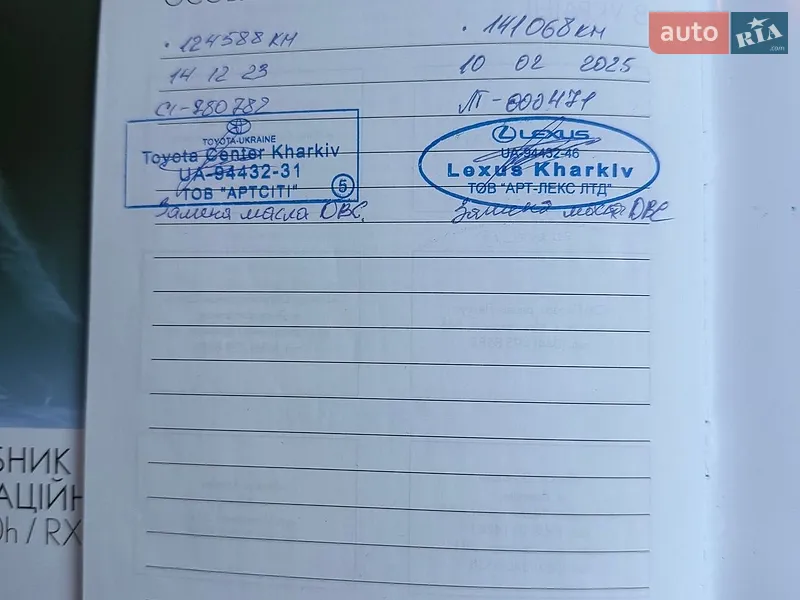 auto RIA .com
· 124588 км
14 12 23
СІ-880782
TOYOTA-UKRAINE
Toyota Center Kharkiv
UA-94432-31
ТОВ "АРТСІТІ"
5
Замена масла ДВС.
· 141068 км
10 02 2025
ЛТ-000471
LEXUS
UA-94432-46
Lexus Kharkiv
ТОВ "АРТ-ЛЕКС ЛТД"
Замена масла ДВС
БНИК
АЦІЙН
0h / RX